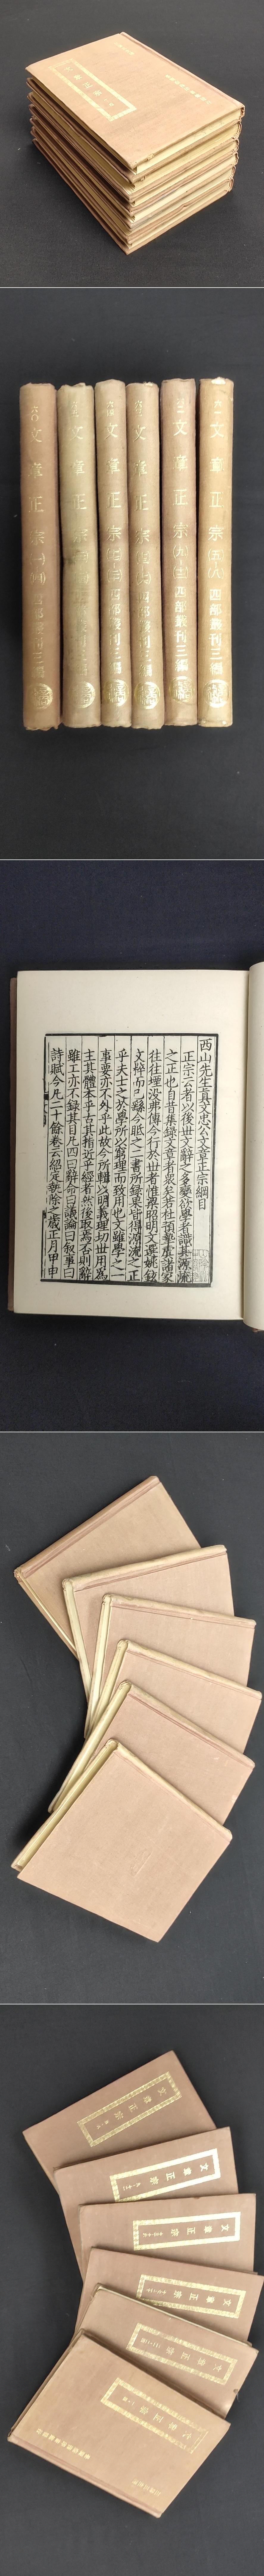 文章正宗
文章正宗(一)(四)四部叢刊三編
文章正宗
四部叢刊三編
文章正宗
四部叢刊三編
文章正宗
四部叢刊三編
文章正宗(九)
四部叢刊三編
文章正宗(五)(八)四部叢刊三編
西山先生真文忠公文章正宗綱目
正宗云者以後世文辭之多變欲學者識其源流
之正也自昔集録文章者衆矣若杜預摯虞諸家
往往堙没弗傳今行於世者惟梁昭明文選姚鉉
文粹而已繇今眡之二書所録果皆得源流之正
乎夫士之於學所以窮理而致用也文雖學之一
事要亦不外乎此故今所輯以明義理切世用為
主其體本乎古其指近乎經者然後取焉否則辭
雖工亦不録其目凡四曰辭命曰議論曰叙事曰
詩賦今凡二十餘卷云紹定執徐之歲正月甲申
文章正宗
文章正宗
文章正宗
文章正宗
文章正宗
文章正宗